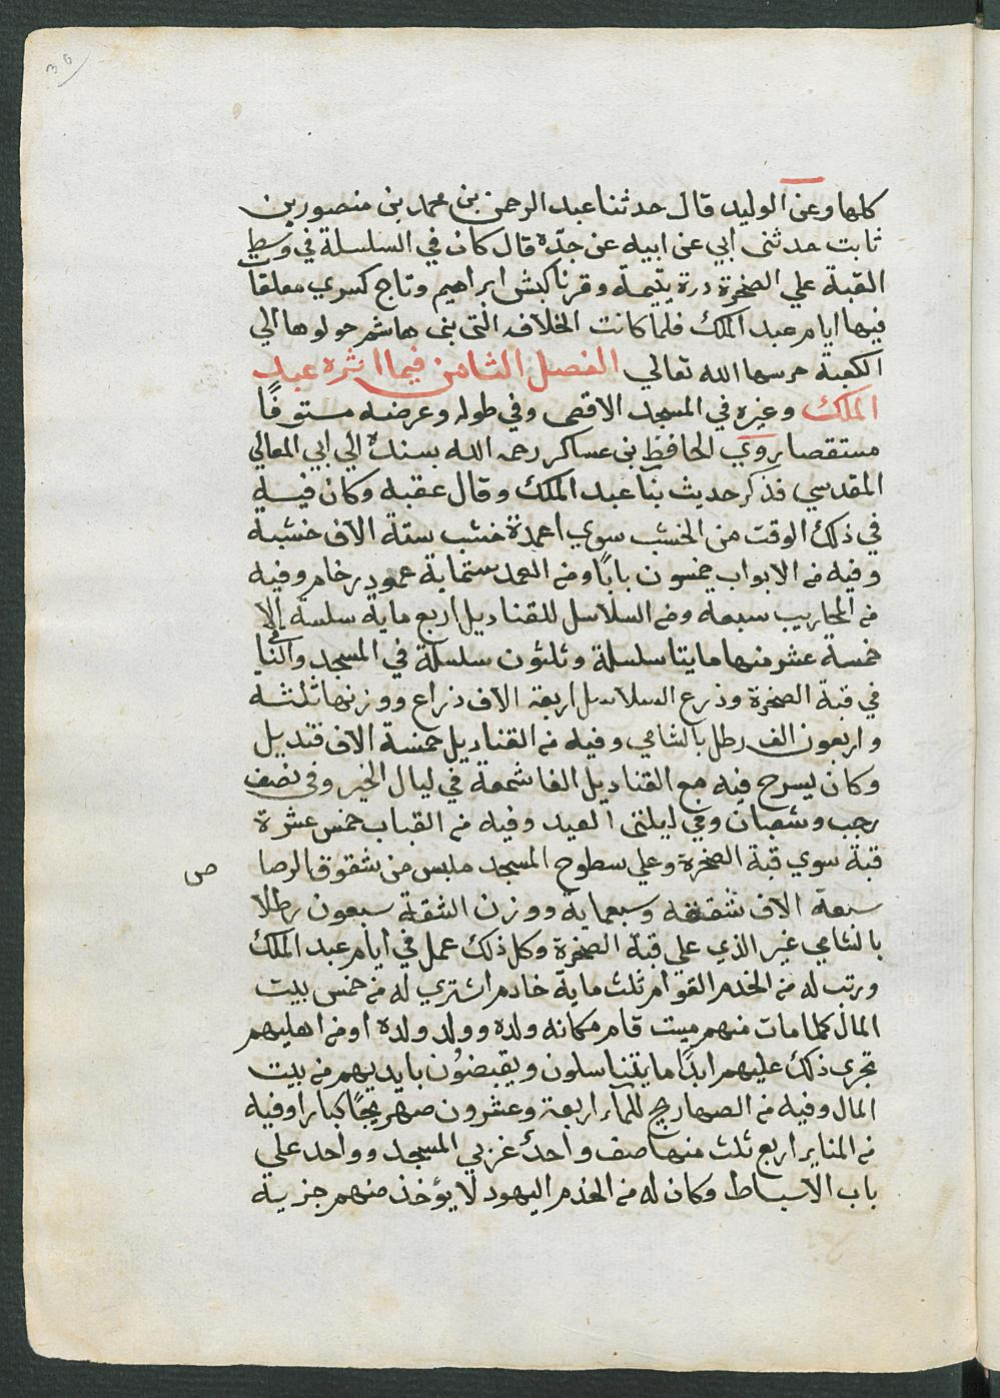 36
كلها وعن الوليد قال حدثنا عبد الرحمن بن محمد بن منصور بن
ثابت حدثنى ابي عن ابيه عن جدّه قال كان في السلسلة في وسط
القبة علي الصخرة درة يتيمة وقرنا كبش ابراهيم وتاج كسري معلقا
فيها ايام عبد الملك فلما كانت الخلافه التى بنى هاشم حولوها الي
الكعبة حرسها الله تعالي الفصل الثامن فيما اثره عبد
الملك وغيره في المسجد الاقصى وفي طوله وعرضه مستوفًا
مستقصا روي الحافظ بن عساكر رحمه الله بسنده الي ابي المعالي
المقدسي فذكر حديث بنآ عبد الملك وقال عقبه وكان فيه
في ذلك الوقت من الخشب سوي اعمدة خشب ستة الاف خشبه
وفيه من الابواب خمسون بابًا ومن العمد ستماية عمود رخام وفيه
من المحاريب سبعه ومن السلاسل للقناديل اربع ماية سلسة الا
خمسة عشر منها مايتا سلسلة وثلثون سلسلة في المسجد والباقي
في قبة الصخرة وذرع السلاسل اربعة الاف ذراع ووزنها ثلثه
واربعون الف رطل بالشامي وفيه من القناديل خمسة الاف قنديل
وكان يسرح فيه مع القناديل الفا شمعة في ليال الخير وفى نصف
رجب وشعبان وفي ليلتى العيد وفيه من القباب خمس عشرة
قبة سوي قبة الصخرة وعلي سطوح المسجد ملبس من شقوق الرصا ص
سبعة الاف شقفه وسبعماية ووزن الشقة سبعون رطلا
بالشامي غير الذي على قبة الصخرة وكل ذلك عمل في ايام عبد الملك
ورتب له من الخدم القوام ثلث ماية خادم اشتري له من خمس بيت
المال كلما مات منهم ميت قام مكانه ولده وولد ولده او من اهليهم
تجرى ذلك عليهم ابدًا ما يتناسلون ويقبضون بايديهم من بيت
المال وفيه من الصهاريج للمآء اربعة وعشرون صهريجًا كبارا وفيه
من المناير اربع ثلث منها صف واحدٌ غربي المسجد وواحد علي
باب الاسباط وكان له من الخدم اليهود لا يؤخذ منهم جزية